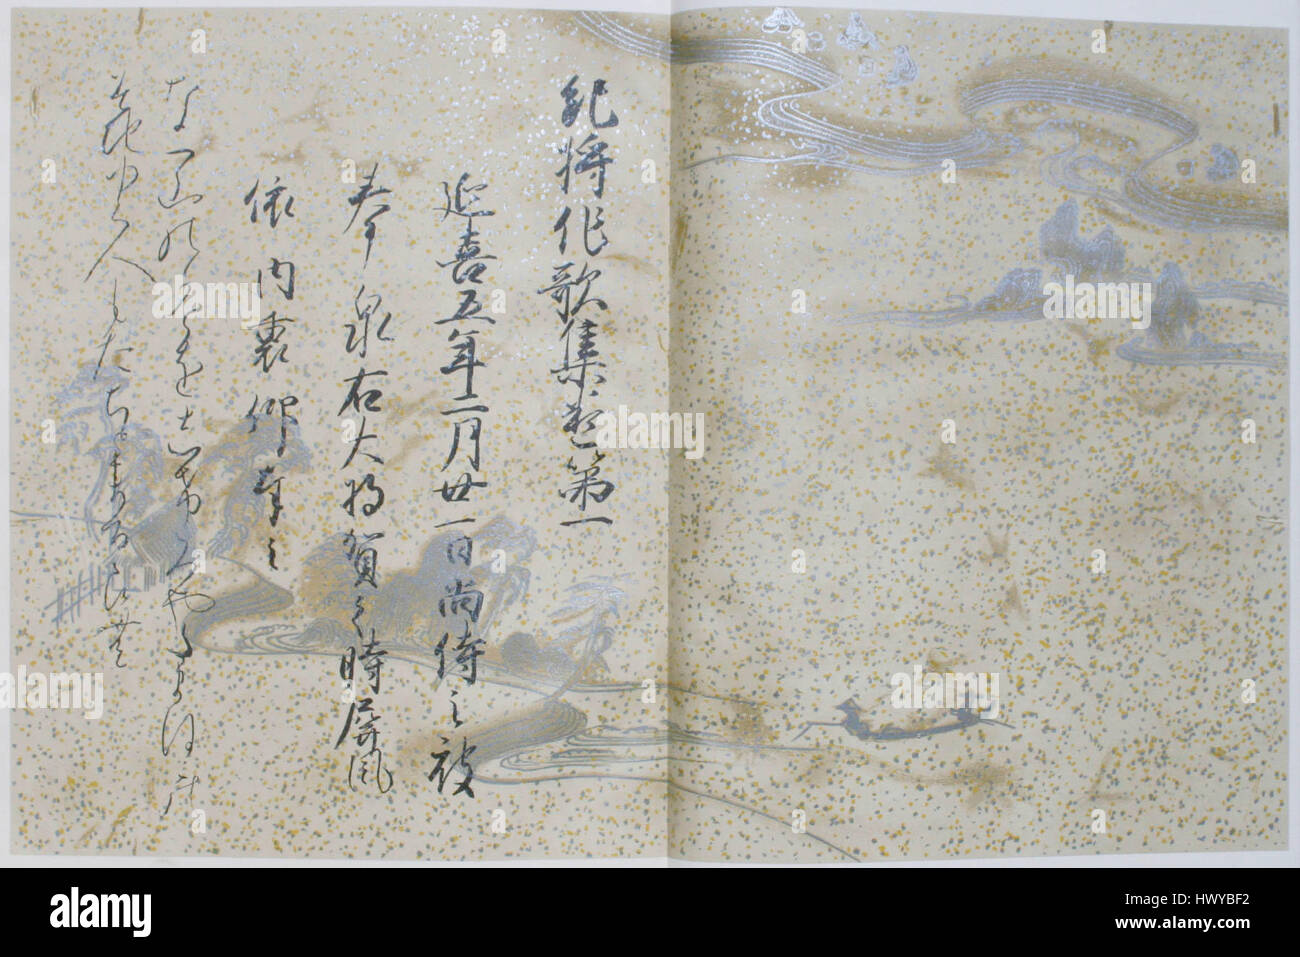 紀将作歌集巻第一
延喜五年二月廿一日尚侍之被
奉泉右大将賀之時屏風
依内裏仰奉之
なつ山のかけをしけみやたまほこの
ゆく人もたちとまるらむ
alamy
alamy
Image ID: HWYBF2
www.alamy.com